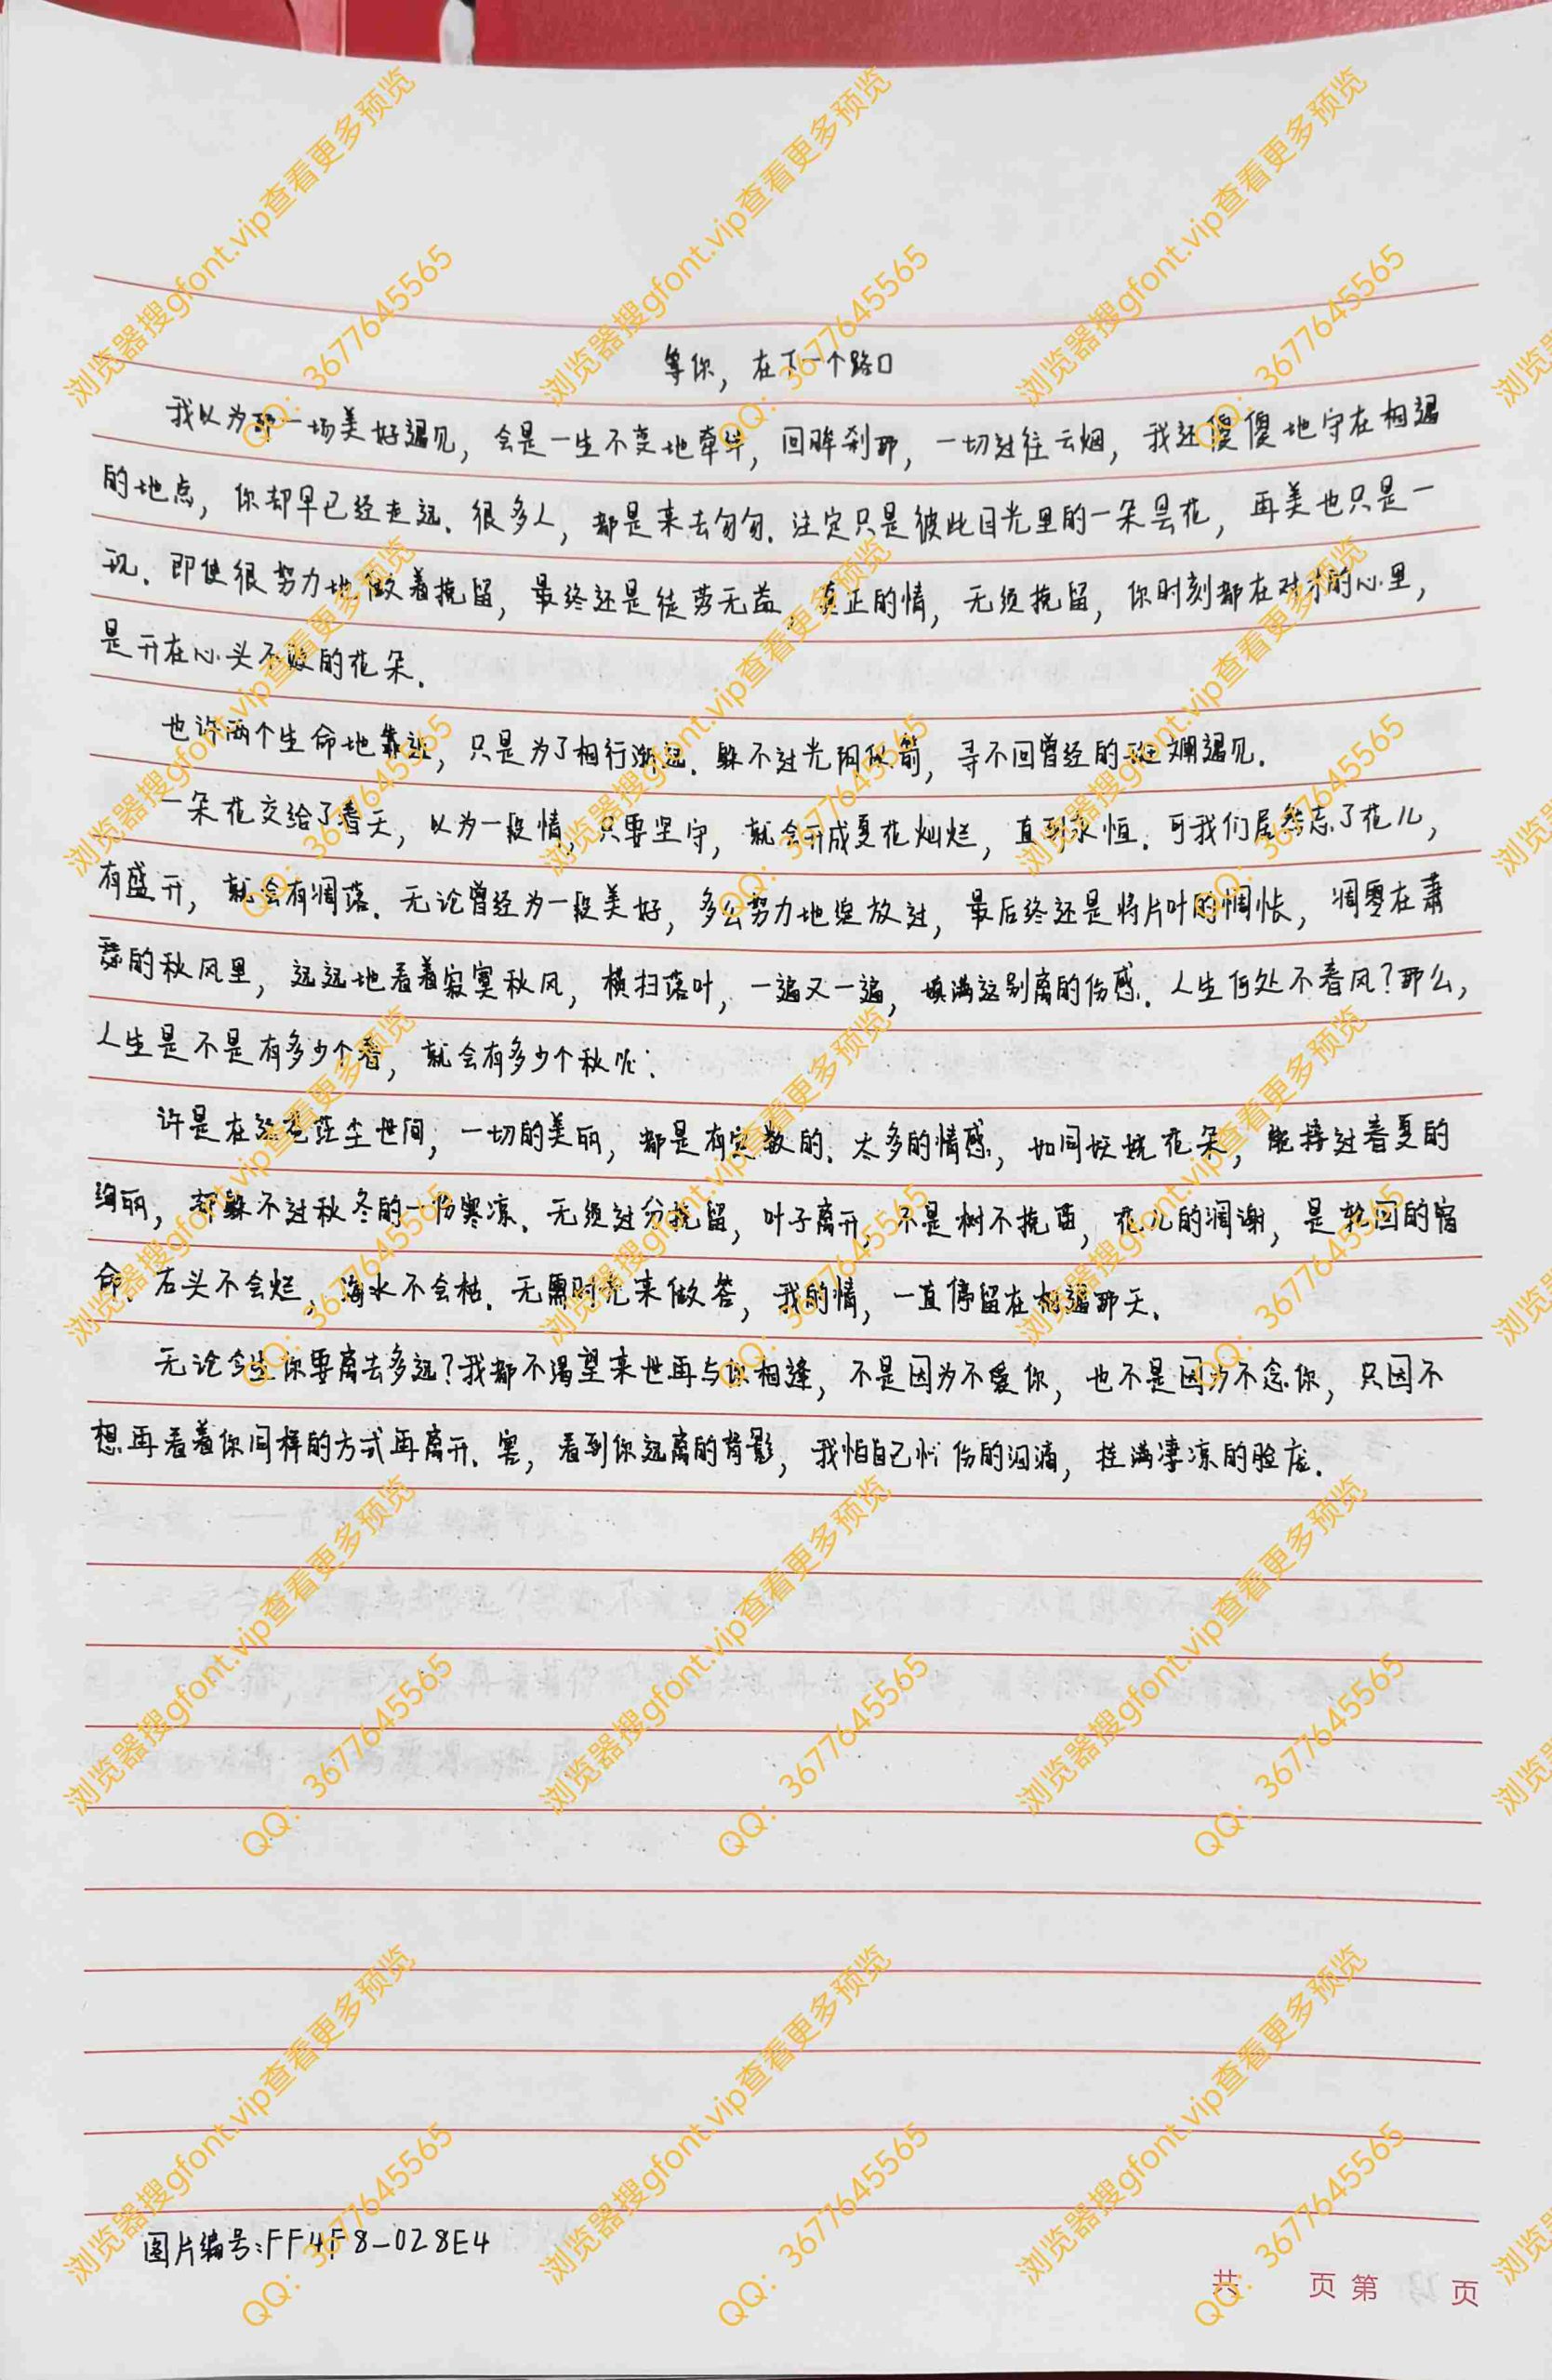 等你，在下一个路口
我以为那一场美好遇见，会是一生不变地牵绊，回眸刹那，一切过往云烟，我还傻傻地守在相遇
的地点，你却早已经走远．很多人，都是来去匆匆．注定只是彼此目光里的一朵昙花，再美也只是一
现．即使很努力地做着挽留，最终还是徒劳无益，真正的情，无须挽留，你时刻都在对方的心里，
是开在心头不败的花朵．
也许两个生命地靠近，只是为了相行渐远．躲不过光阴似箭，寻不回曾经的斑斓遇见．
一朵花交给了春天，以为一段情，只要坚守，就会开成夏花灿烂，直到永恒．可我们居然忘了花儿，
有盛开，就会有凋落．无论曾经为一段美好，多么努力地绽放过，最后终还是将片叶的惆怅，凋零在萧
瑟的秋风里，远远地看着寂寞秋风，横扫落叶，一遍又一遍，填满这别离的伤感．人生何处不春风？那么，
人生是不是有多少个春，就会有多少个秋呢：
许是在这苍茫尘世间，一切的美丽，都是有定数的．太多的情感，如同妖娆花朵，能择过春夏的
绚丽，却躲不过秋冬的一份寒凉．无须过分挽留，叶子离开，不是树不挽留，花儿的凋谢，是轮回的宿
命．石头不会烂，海水不会枯．无需时光来做答，我的情，一直停留在相遇那天．
无论今生你要离去多远？我都不渴望来世再与你相逢，不是因为不爱你，也不是因为不念你，只因不
想再看着你同样的方式再离开．害，看到你远离的背影，我怕自己忧伤的泪滴，挂满凄凉的脸庞．
图片编号：FF4F8-028E4
共 页 第 页
浏览器搜gfont.vip查看更多预览
QQ：3677645565